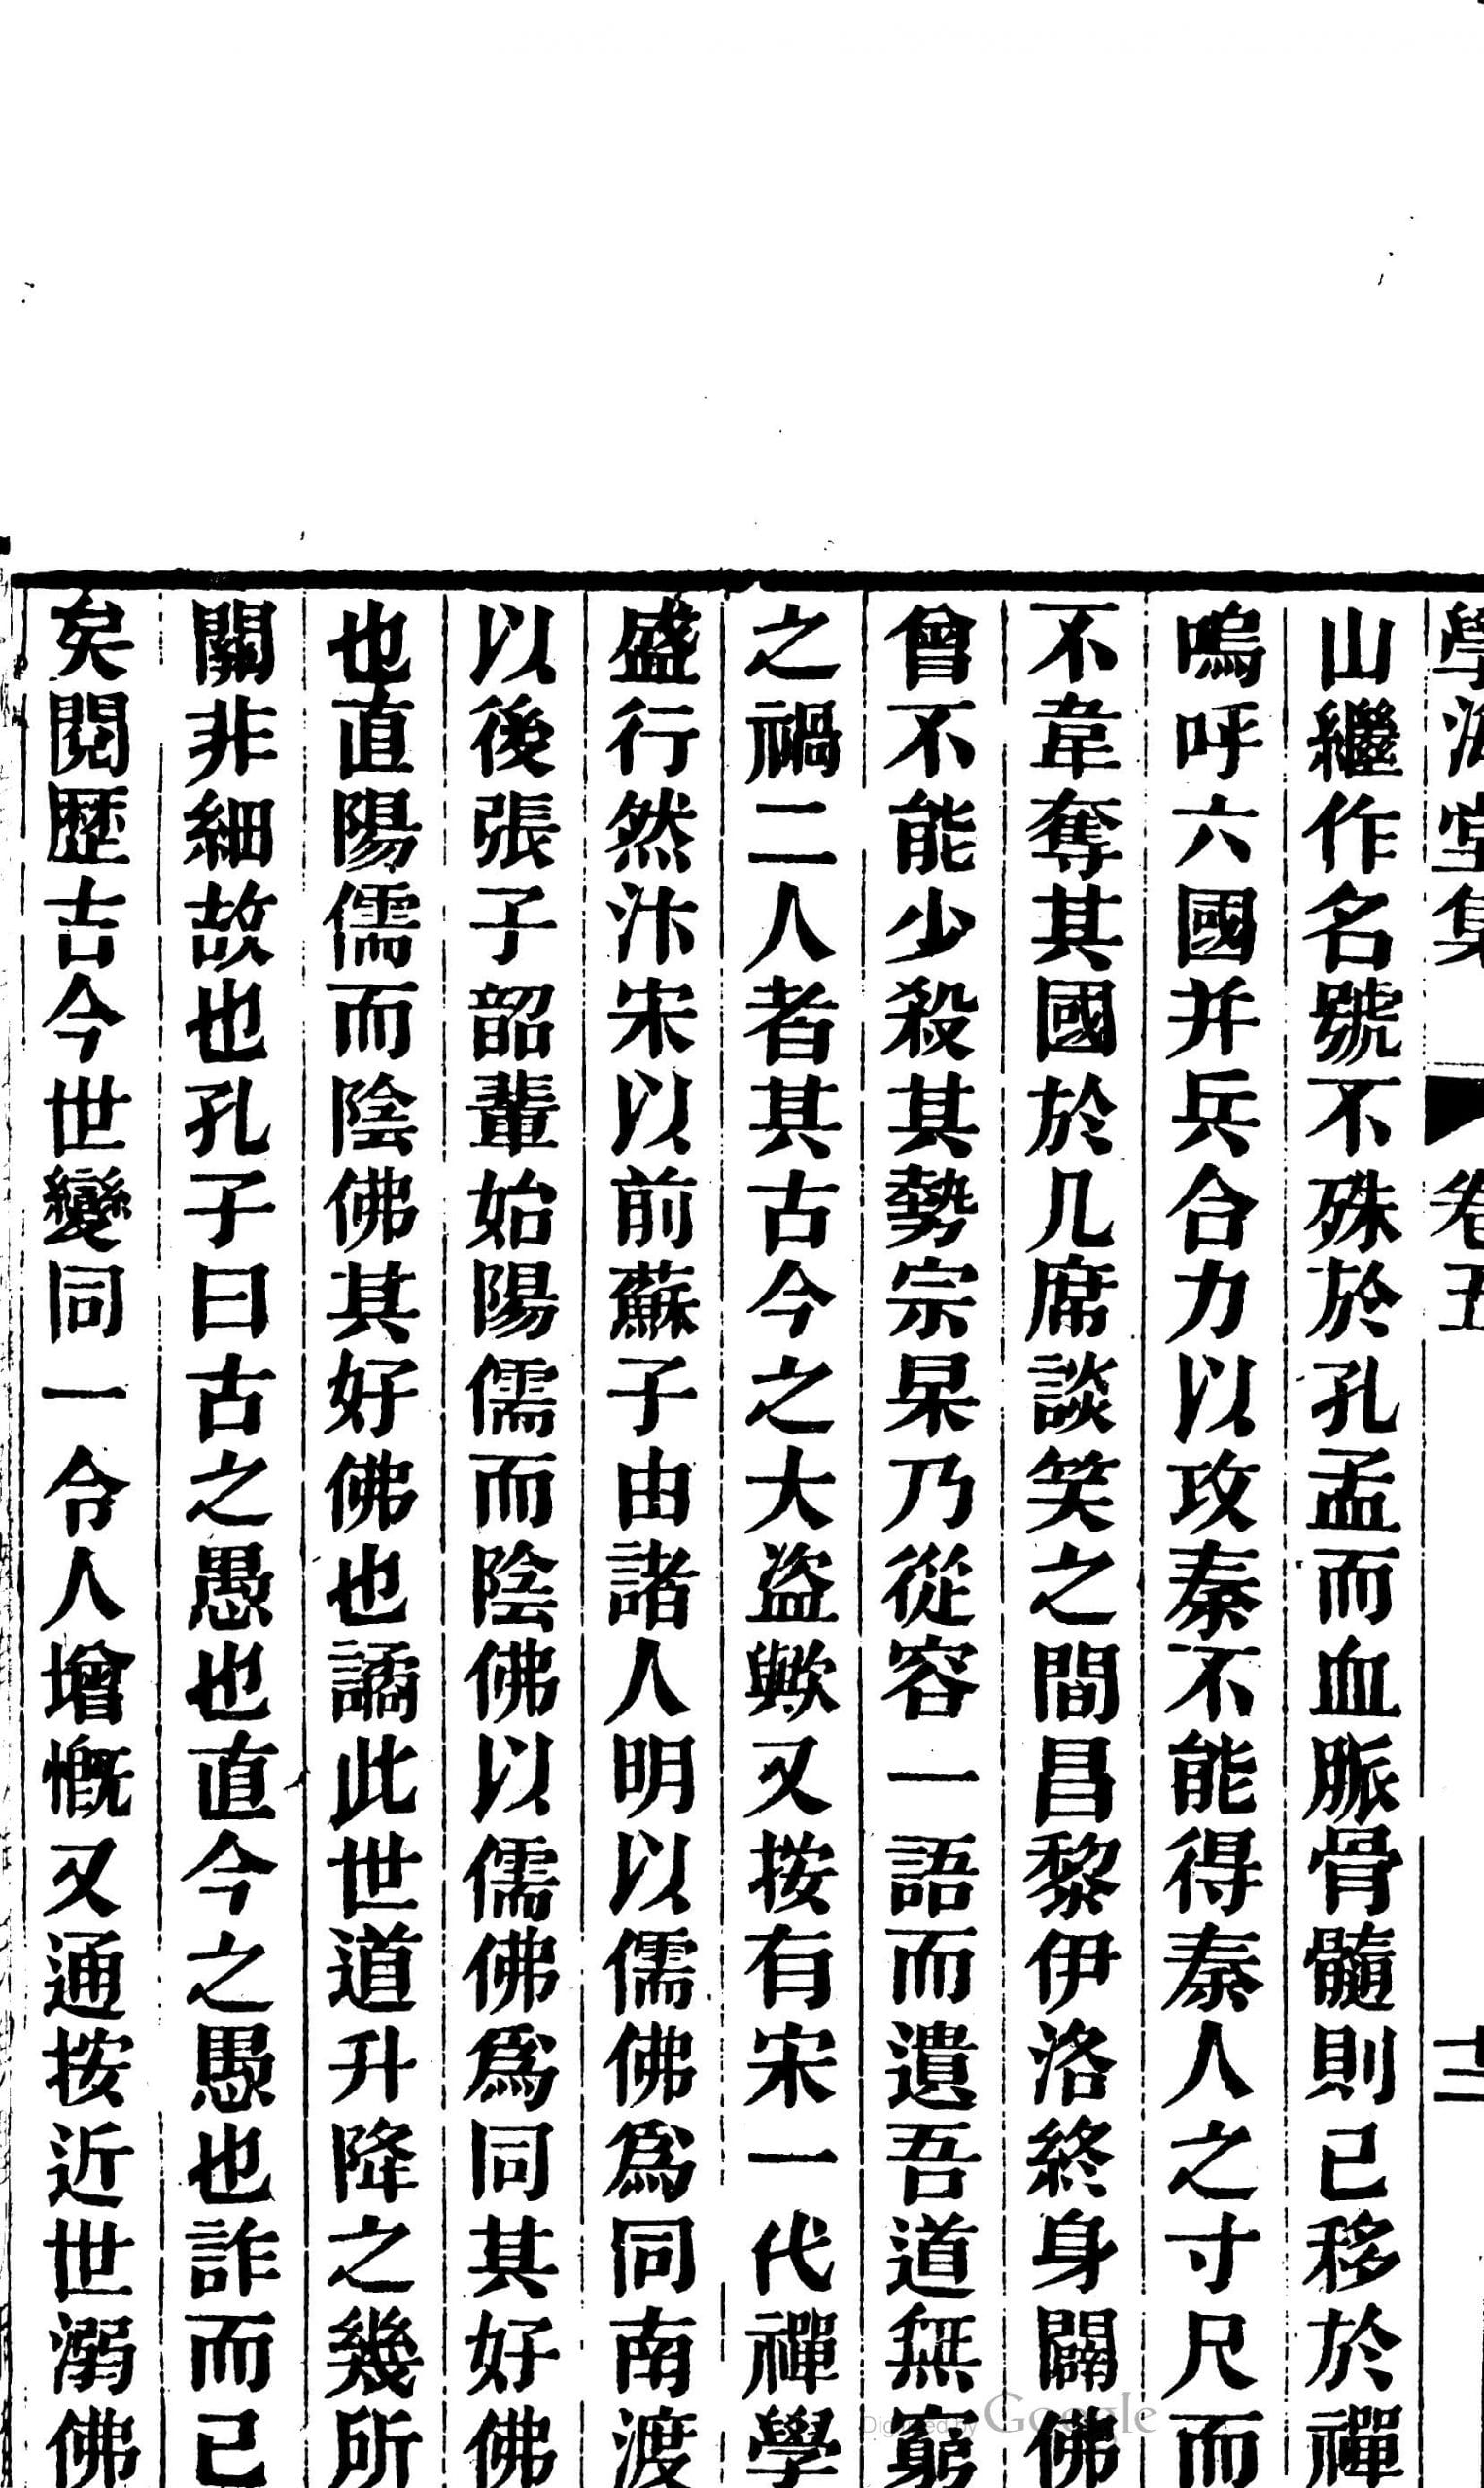 學海堂集 卷五 十二
山繼作名號不殊於孔孟而血脈骨髓則已移於禪
嗚呼六國并兵合力以攻秦不能得秦人之寸尺而
不韋奪其國於几席談笑之間昌黎伊洛終身闢佛
曾不能少殺其勢宗杲乃從容一語而遺吾道無窮
之禍二人者其古今之大盜歟又按有宋一代禪學
盛行然汴宋以前蘇子由諸人明以儒佛爲同南渡
以後張子韶輩始陽儒而陰佛以儒佛爲同其好佛
也直陽儒而陰佛其好佛也譎此世道升降之幾所
關非細故也孔子曰古之愚也直今之愚也詐而已
矣閱歷古今世變同一令人增慨又通按近世溺佛
Digitized by Google